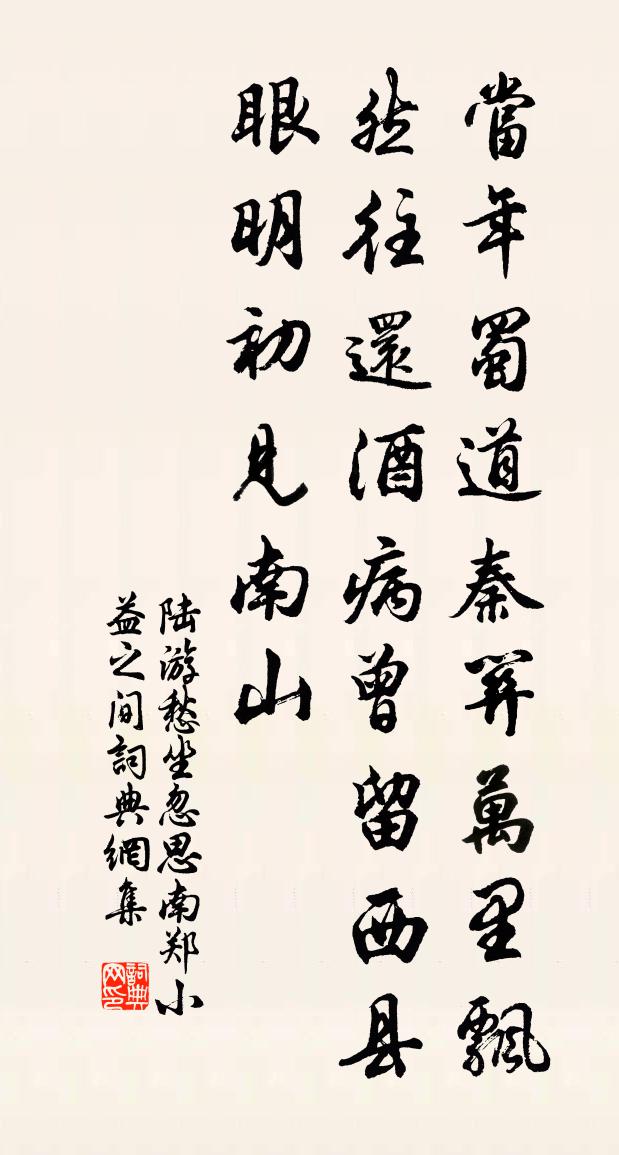 當年蜀道秦關萬里飄
然往還酒病曾留西县
眼明初見南山
陆游愁坐忽思南郑小
益之间詞典網集
詞典网印